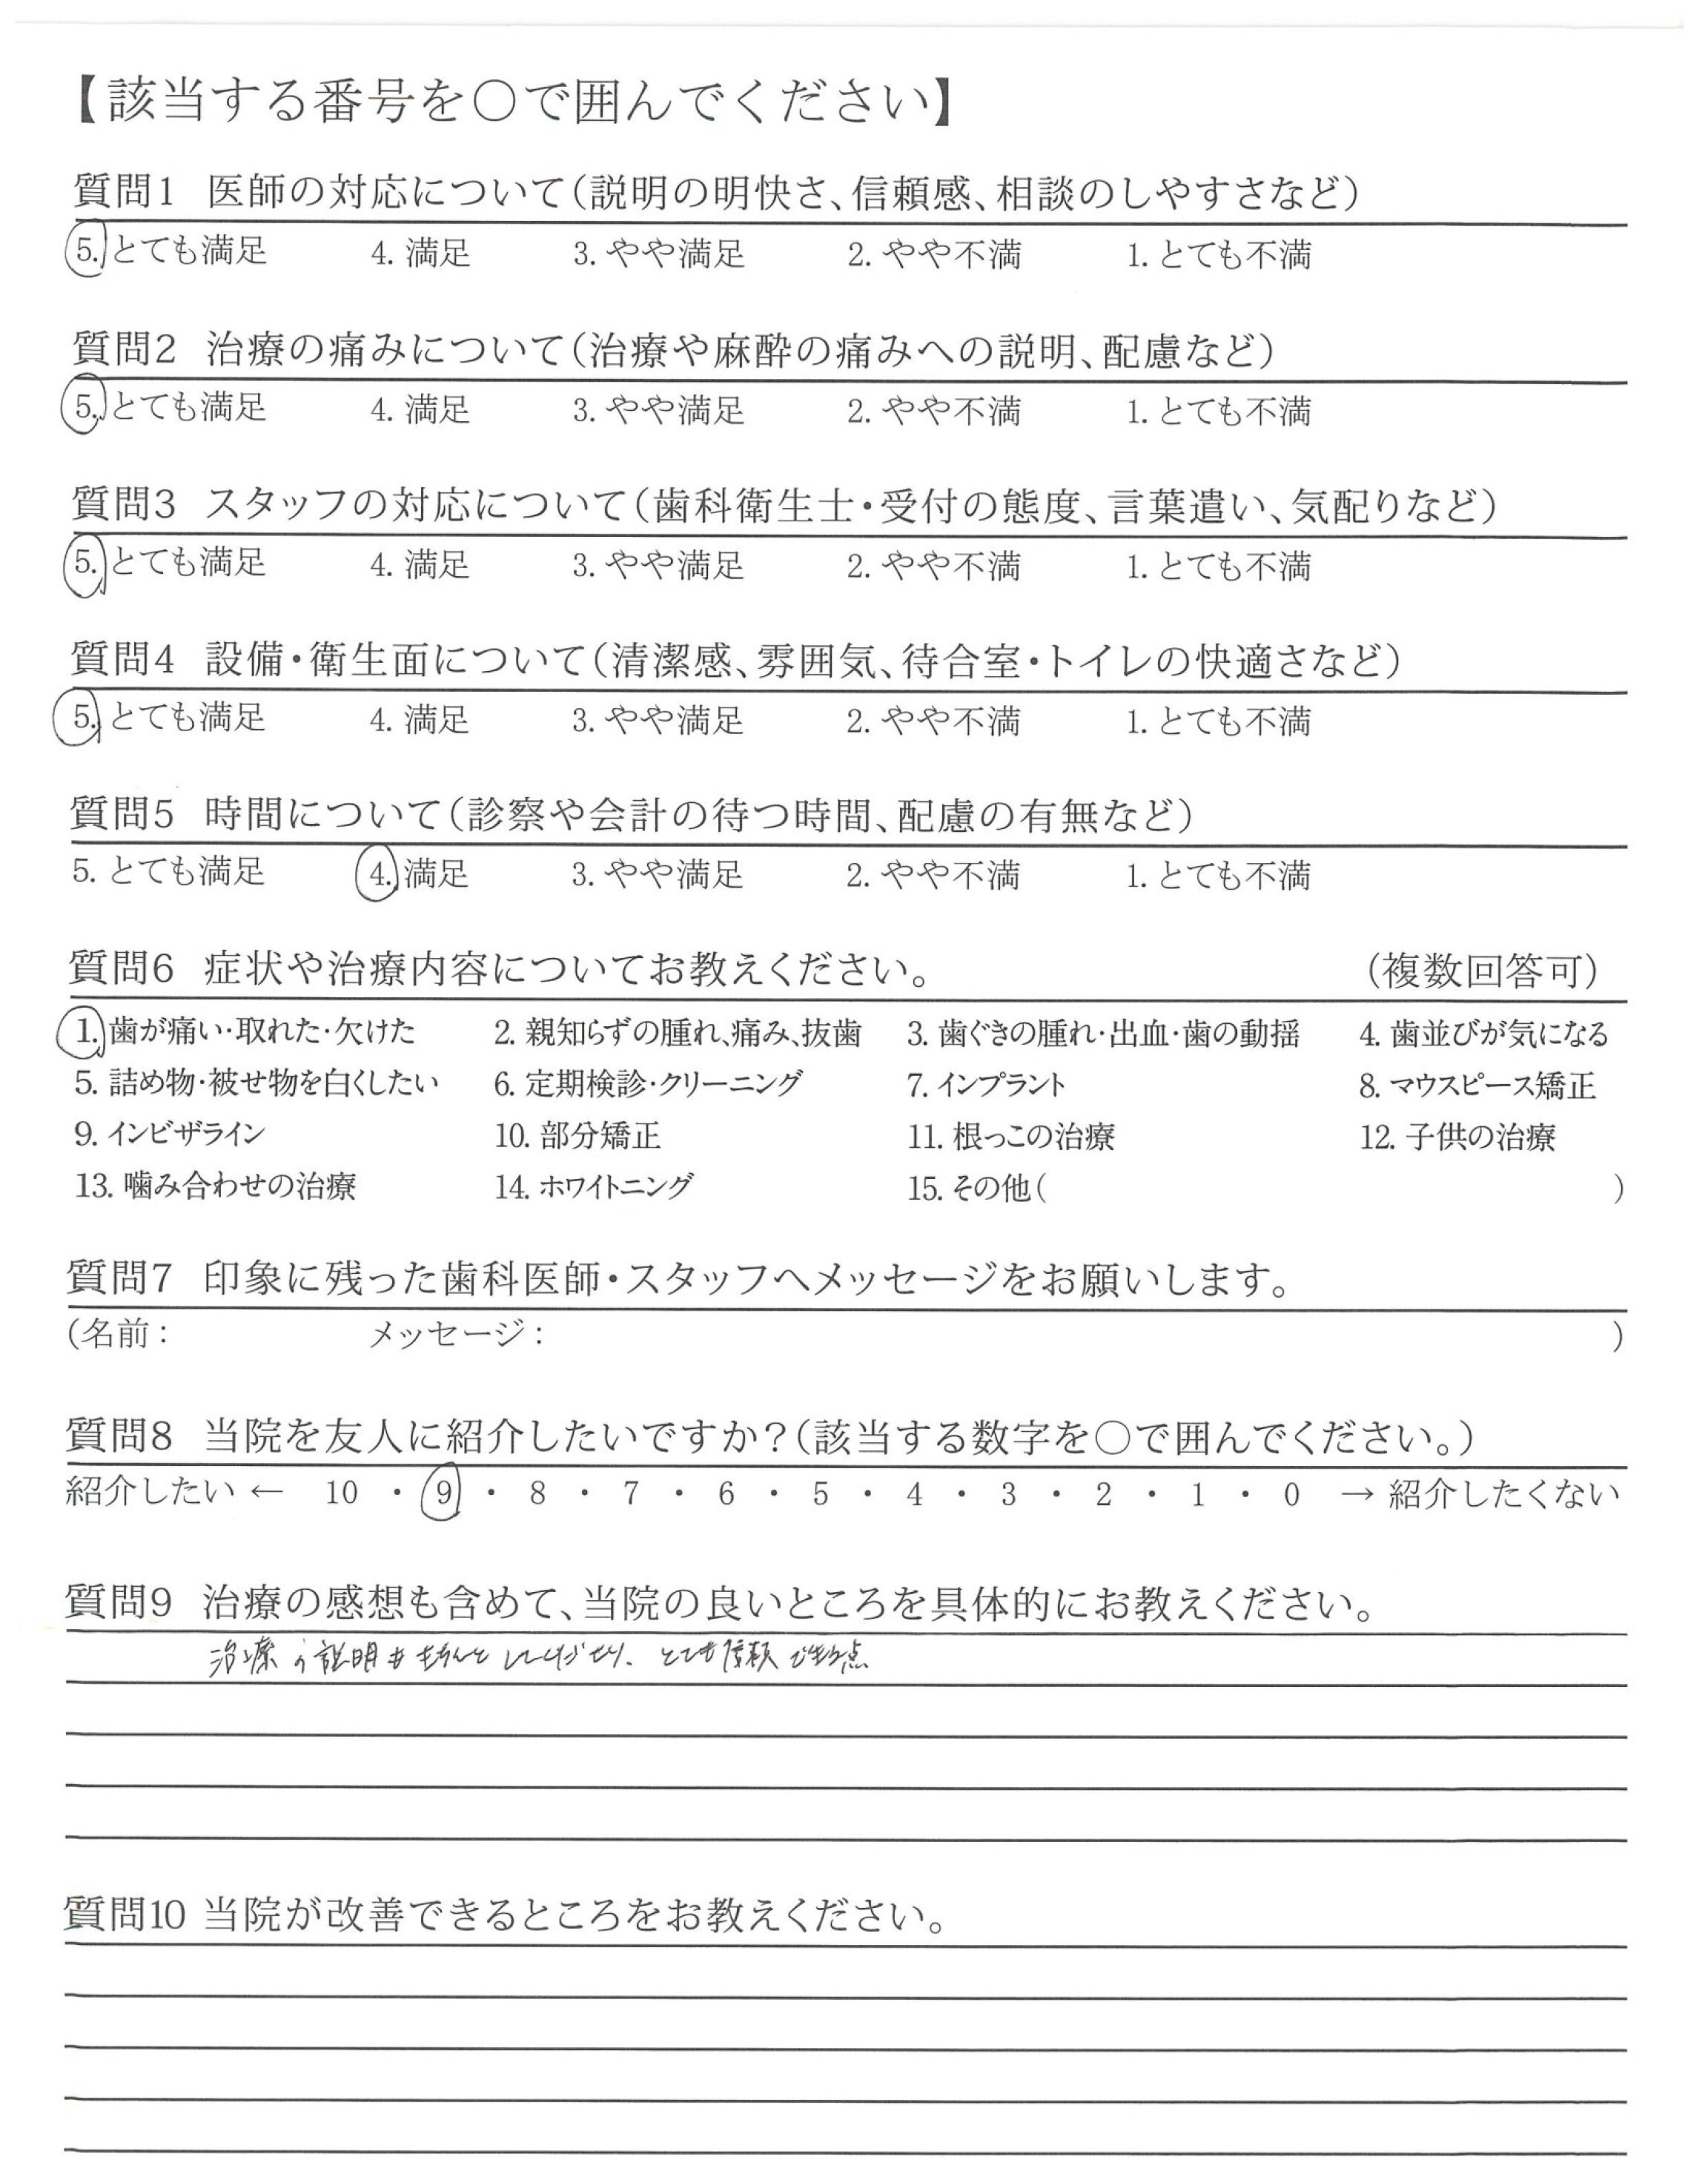 【該当する番号を○で囲んでください】
質問1 医師の対応について(説明の明快さ、信頼感、相談のしやすさなど)
5. とても満足 4. 満足 3. やや満足 2. やや不満 1. とても不満
質問2 治療の痛みについて(治療や麻酔の痛みへの説明、配慮など)
5. とても満足 4. 満足 3. やや満足 2. やや不満 1. とても不満
質問3 スタッフの対応について(歯科衛生士・受付の態度、言葉遣い、気配りなど)
5. とても満足 4. 満足 3. やや満足 2. やや不満 1. とても不満
質問4 設備・衛生面について(清潔感、雰囲気、待合室・トイレの快適さなど)
5. とても満足 4. 満足 3. やや満足 2. やや不満 1. とても不満
質問5 時間について(診察や会計の待つ時間、配慮の有無など)
5. とても満足 4. 満足 3. やや満足 2. やや不満 1. とても不満
質問6 症状や治療内容についてお教えください。 (複数回答可)
1. 歯が痛い・取れた・欠けた 2. 親知らずの腫れ、痛み、抜歯 3. 歯ぐきの腫れ・出血・歯の動揺 4. 歯並びが気になる
5. 詰め物・被せ物を白くしたい 6. 定期検診・クリーニング 7. インプラント 8. マウスピース矯正
9. インビザライン 10. 部分矯正 11. 根っこの治療 12. 子供の治療
13. 噛み合わせの治療 14. ホワイトニング 15. その他( )
質問7 印象に残った歯科医師・スタッフへメッセージをお願いします。
(名前： メッセージ： )
質問8 当院を友人に紹介したいですか？(該当する数字を○で囲んでください。)
紹介したい ← 10 ・ 9 ・ 8 ・ 7 ・ 6 ・ 5 ・ 4 ・ 3 ・ 2 ・ 1 ・ 0 → 紹介したくない
質問9 治療の感想も含めて、当院の良いところを具体的にお教えください。
治療の説明もきちんとしてくださり、とても信頼できる点
質問10 当院が改善できるところをお教えください。